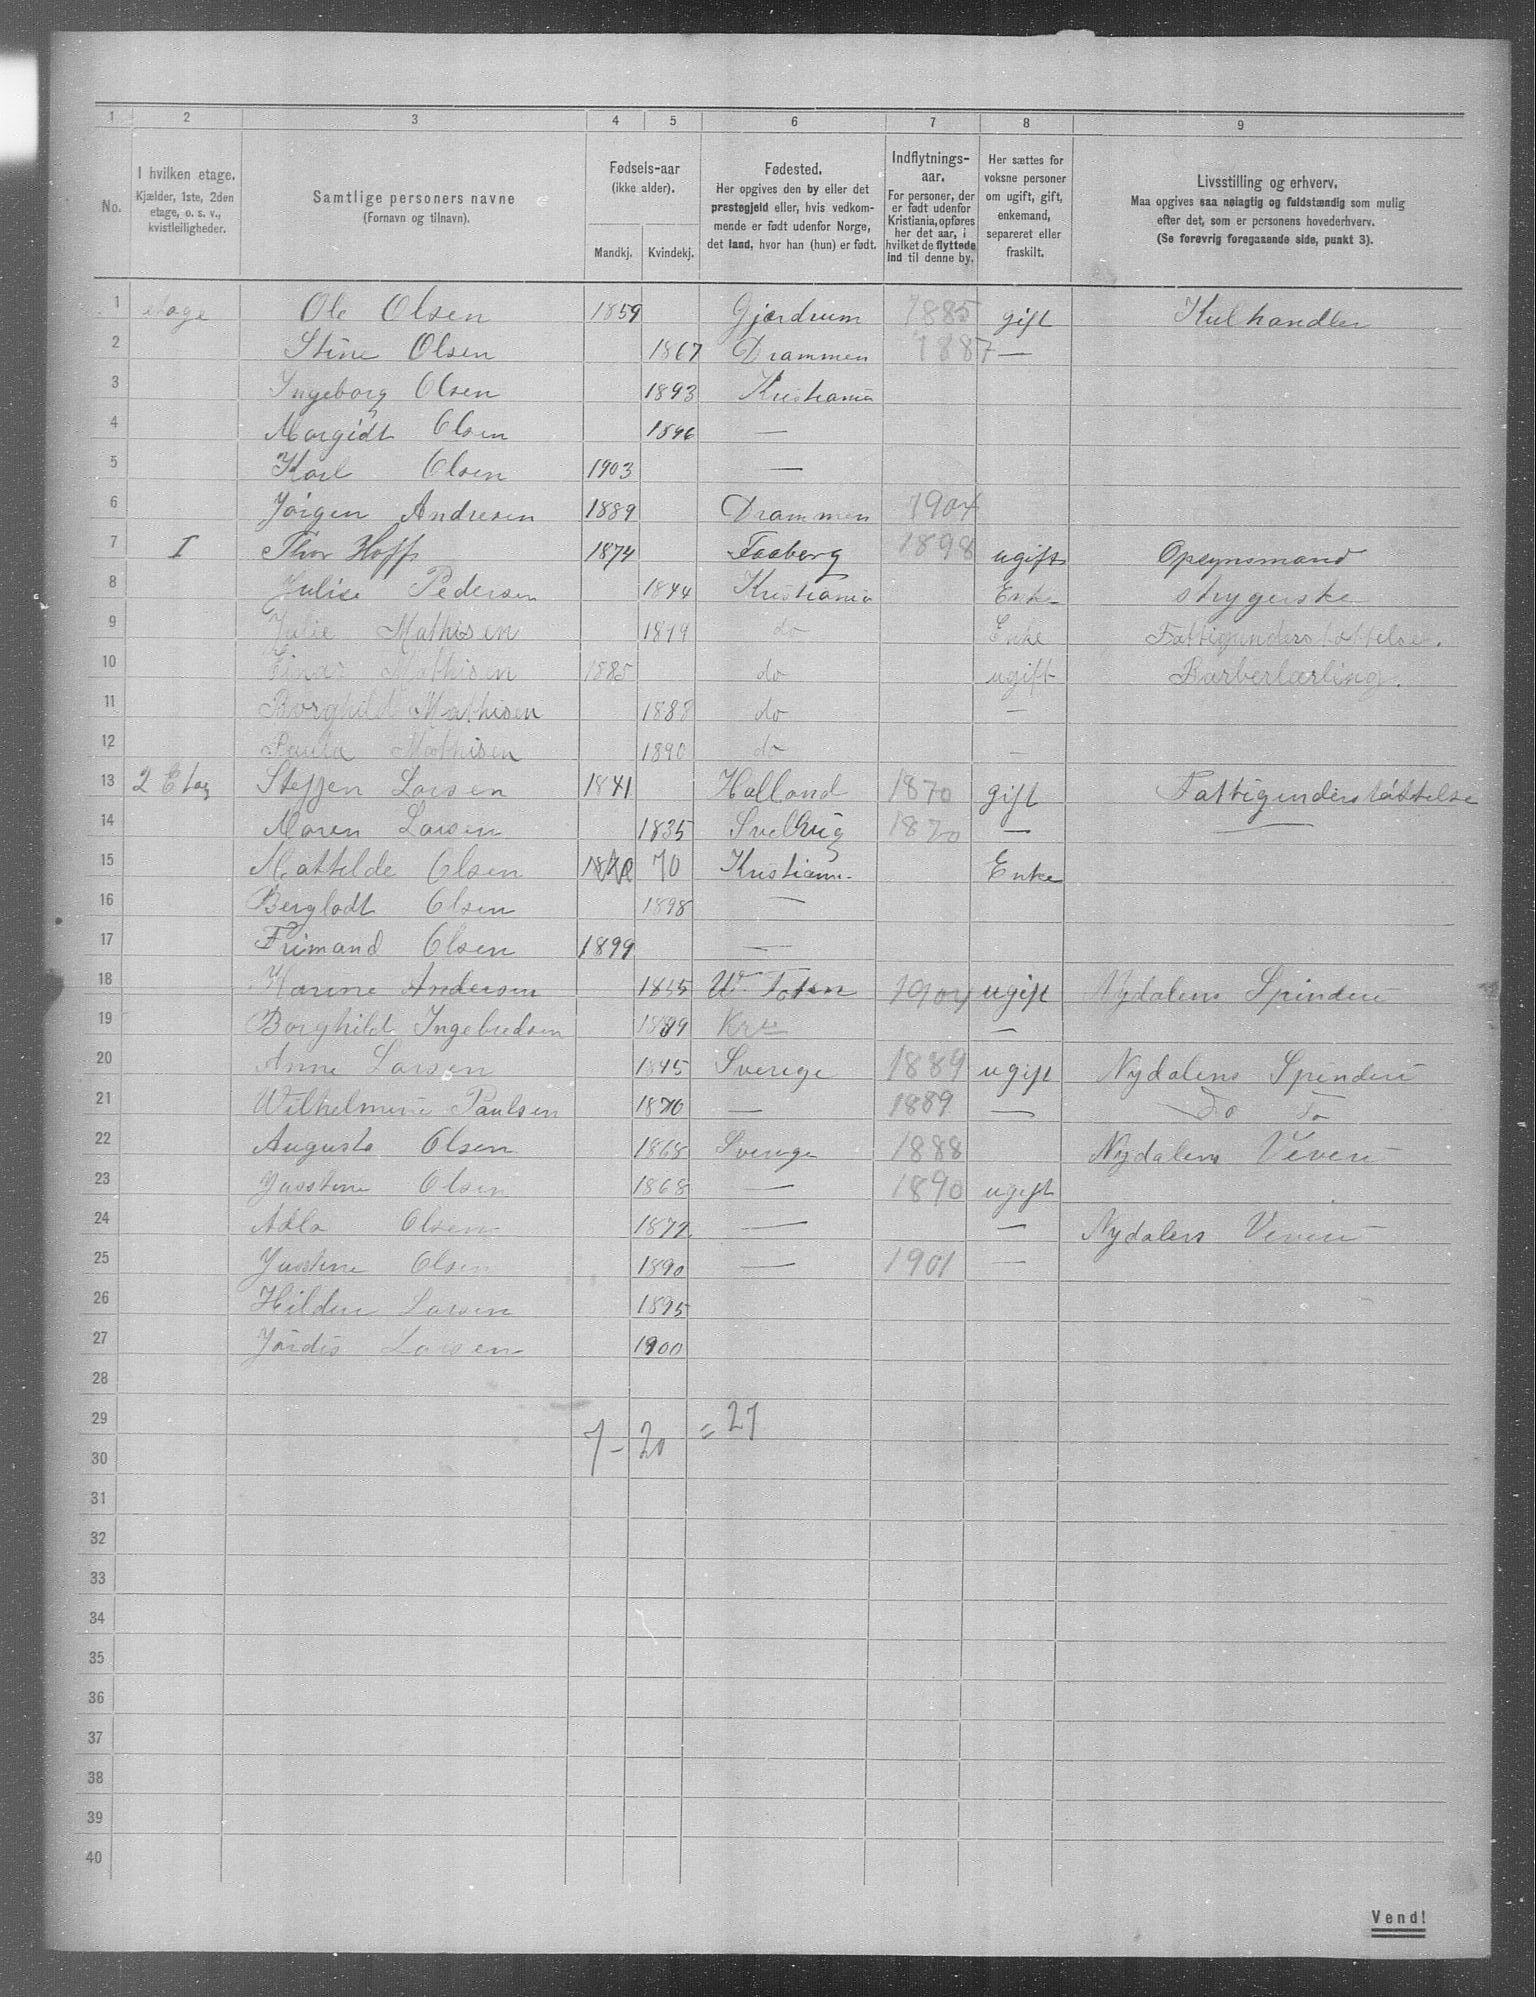 1 2 3 4 5 6 7 8 9
No.
I hvilken etage.
Kjælder, 1ste, 2den
etage, o. s. v.,
kvistleiligheder.
Samtlige personers navne
(Fornavn og tilnavn).
Fødsels-aar
(ikke alder).
Mandkj. Kvindekj.
Fødested.
Her opgives den by eller det
prestegjeld eller, hvis vedkom-
mende er født udenfor Norge,
det land, hvor han (hun) er født.
Indflytnings-
aar.
For personer, der
er født udenfor
Kristiania, opføres
her det aar, i
hvilket de flyttede
ind til denne by.
Her sættes for
voksne personer
om ugift, gift,
enkemand,
separeret eller
fraskilt.
Livsstilling og erhverv.
Maa opgives saa nøiagtig og fuldstændig som mulig
efter det, som er personens hovederhverv.
(Se forøvrig foregaaende side, punkt 3).
1 etage Ole Olsen 1859 Gjerdrum 1885 gift Kulhandler
2 Stine Olsen 1867 Drammen 1887 —
3 Ingeborg Olsen 1893 Kristiania
4 Margidt Olsen 1896 —
5 Karl Olsen 1903 —
6 Jörgen Andresen 1889 Drammen 1904
7 I Thor Hoff 1874 Faaberg 1898 ugift Opsynsmand
8 Julise Pedersen 1844 Kristiania Enke strygerske
9 Julie Mathisen 1849 do Enke Fattigunderstøttelse.
10 Einar Mathisen 1885 do ugift Barberlærling.
11 Borghild Mathisen 1888 do —
12 Paula Mathisen 1890 do —
13 2 Etag Steffen Larsen 1841 Halland 1870 gift Fattigunderstøttelse
14 Maren Larsen 1835 Svelvig 1870 — —
15 Mattelde Olsen 70 Kristiania Enke
16 Berglodt Olsen 1898 —
17 Frimand Olsen 1899 —
18 Karine Andersen 1855 W. Toten 1904 ugift Nydalens Spinderi
19 Borghild Ingebredsen 1889 Kra —
20 Anne Larsen 1845 Sverige 1889 ugift Nydalens Spinderi
21 Wilhelmine Paulsen 1870 — 1889 — Do Do
22 Augusta Olsen 1868 Sverige 1888 Nydalens Veveri
23 Justine Olsen 1868 — 1890 ugift
24 Alla Olsen 1872 — — Nydalens Veveri
25 Justine Olsen 1890 — 1901 —
26 Hildur Larsen 1895
27 Jördis Larsen 1900
28
29
7 - 20 = 27
30
31
32
33
34
35
36
37
38
39
40
Vend!